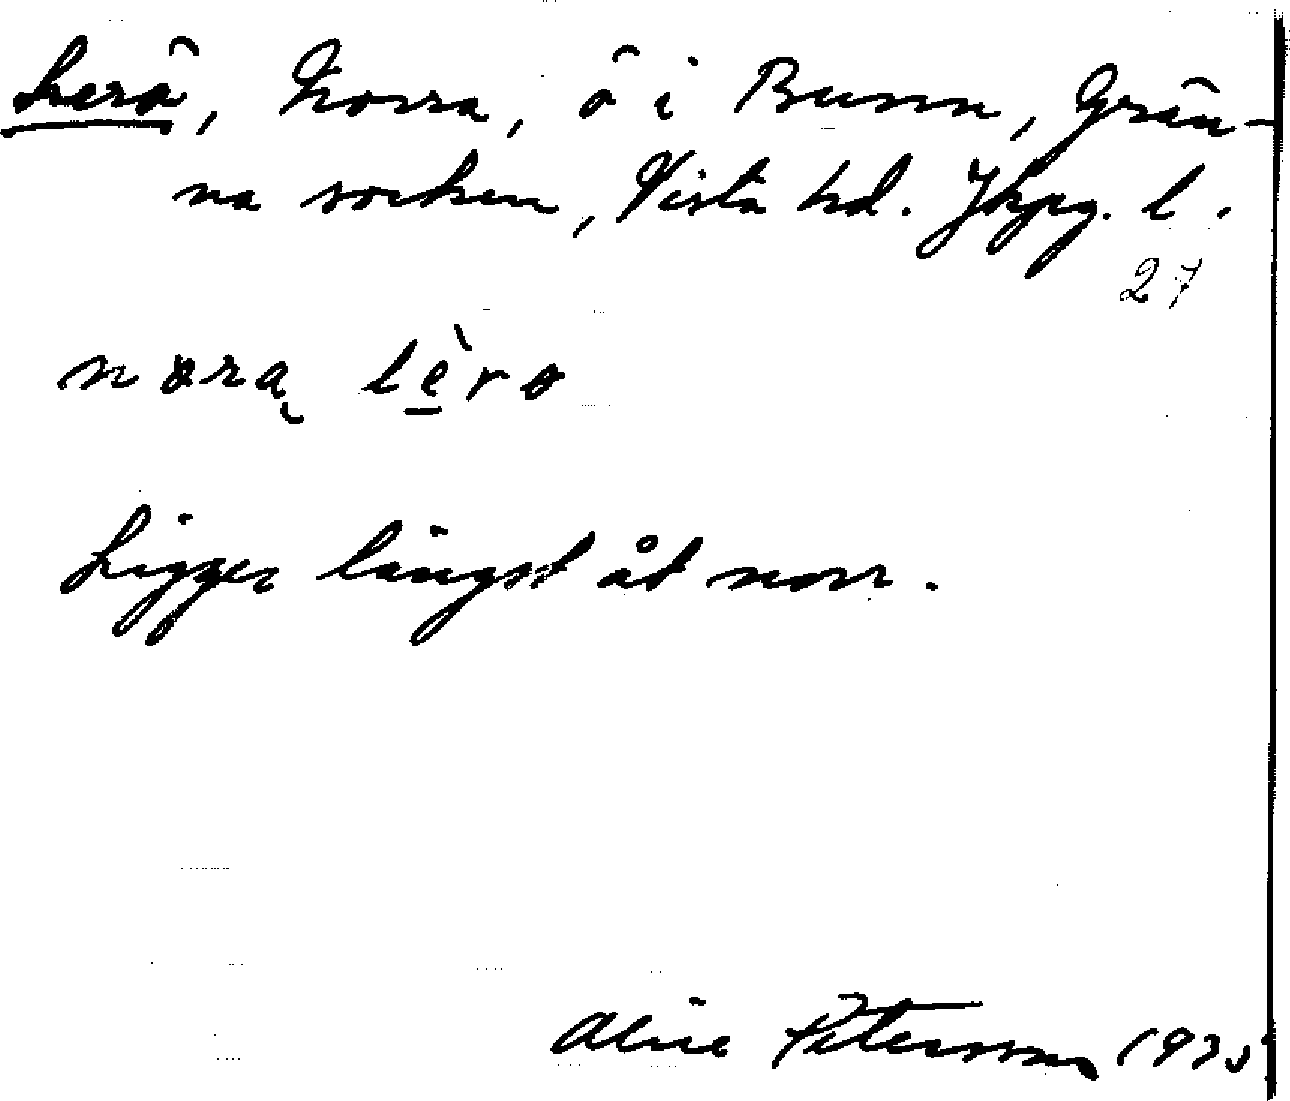 Lerö, Norra, ö i Bunn, Grän-
na socken, Vista hd. Jkpg. l.
27
nora lèro
Ligger längst åt norr.
Alice Petersson 1935